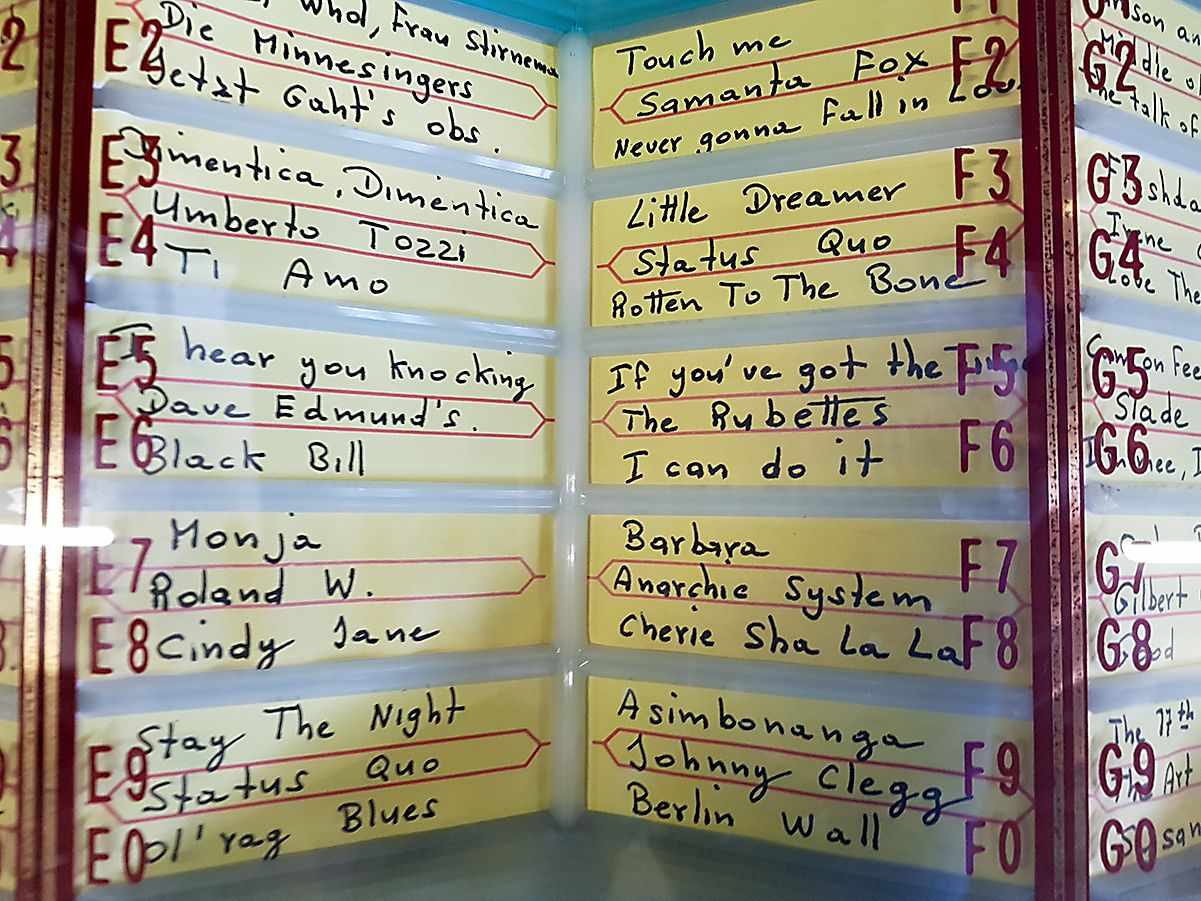 2
3
4
5
6
Whol, Frau
E2
Die Minnesingers
Jetzt Gaht's obs.
E3
Dimentica, Dimentica
Umberto Tozzi
E4
Ti Amo
E5
I hear you knocking
Dave Edmund's.
E6
Black Bill
E7
Monja
Roland W.
E8
Cindy Jane
E9
Stay The Night
Status Quo
E0
ol' rag Blues
Touch me
F2
Samanta Fox
Never gonna Fall in
F3
Little Dreamer
Status Quo
F4
Rotten To The Bone
F5
If you've got the
The Rubettes
F6
I can do it
F7
Barbara
Anarchic System
F8
Cherie Sha La La
F9
Asimbonanga
Johnny Clegg
F0
Berlin Wall
G2
talk of
G3
G4
G5
Slade
G6
G7
Gilbert
G8
The 17th
G9
Art
G0